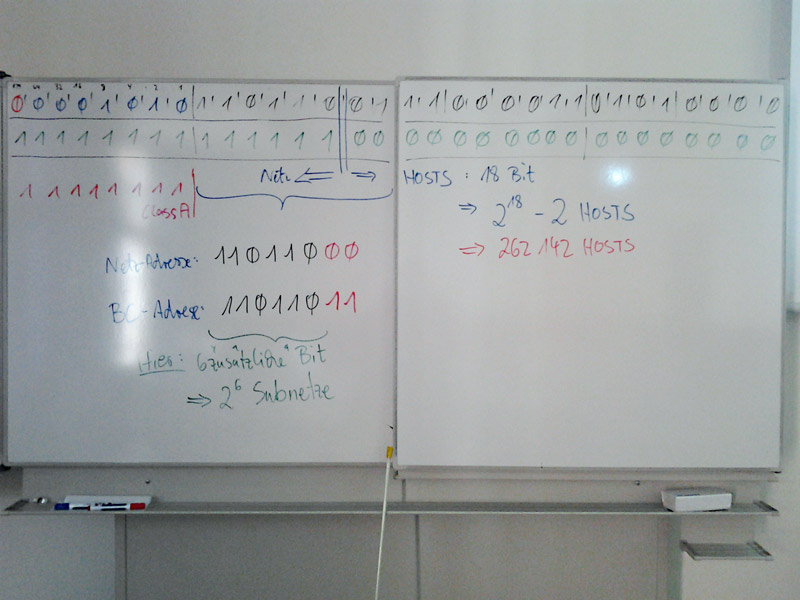 128 64 32 16 8 4 2 1
0 0 0 0 1 0 1 0 1 1 0 1 1 0 0 1 1 1 0 0 0 0 1 1 0 1 0 1 0 0 0 0
1 1 1 1 1 1 1 1 1 1 1 1 1 1 0 0 0 0 0 0 0 0 0 0 0 0 0 0 0 0 0 0
1 1 1 1 1 1 1 1
Class A
Netz ⇐ ⇒ HOSTS : 18 Bit
⇒ 2^18 - 2 HOSTS
⇒ 262 142 HOSTS
Netz-Adresse: 11011000
BC-Adresse: 11011011
Hier: 6 zusätzliche Bit
⇒ 2^6 Subnetze